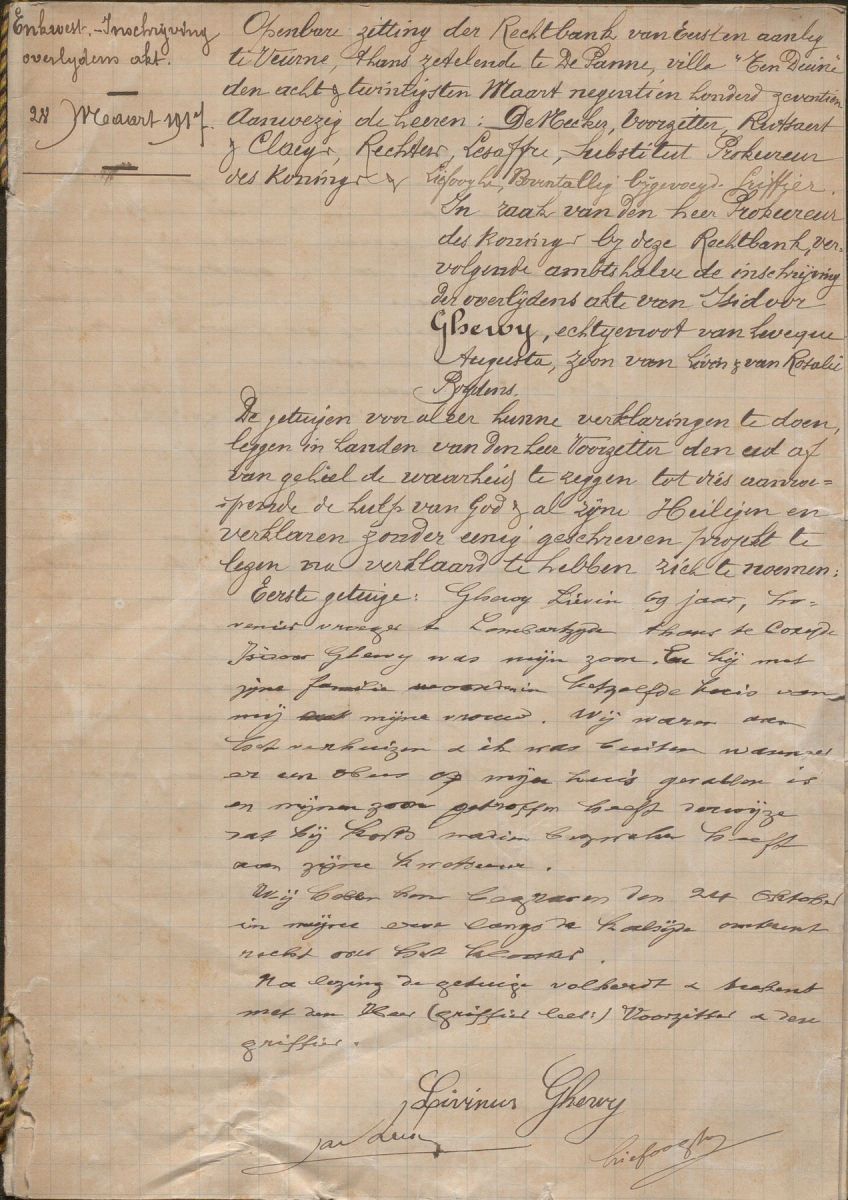 Enkwest.-Inschrijving
overlydens akt.
28 Maart 1917.
Openbare zitting der Rechtbank van Eersten aanleg
te Veurne, thans zetelende te De Panne, villa "Ten Duine"
den acht & twintigsten Maart negentien honderd zeventien
Aanwezig de heeren: De Necker, Voorzetter, Ruttaert
& Claeys, Rechters, Lesaffre, Substitut Prokureur
des Konings & Liefooghe, Boventallig bijgevoegd Griffier.
In zaak van den heer Prokureur
des Konings by deze Rechtbank, ver-
volgende ambtshalve de inschrijving
der overlijdens akte van Isidoor
Ghewy, echtgenoot van
Augusta, zoon van Livin & van Rosalie
Boydens.
De getuijen vooraleer hunne verklaringen te doen,
leggen in handen van den heer Voorzetter den eed af
van geheel de waarheid te zeggen tot dies aanroe-
pende de hulp van God & al zijne Heiligen en
verklaren zonder eenig geschreven projekt te
lezen na verklaard te hebben zich te noemen:
Eerste getuige: Ghewy Liévin 69 jaar, ho-
venier vroeger te Lombartzyde thans te Coxyde
Isidoor Ghewy was mijn zoon. En hij met
zijne familie woonden in hetzelfde huis van
mij mijne vrouw. Wij waren aan
het verhuizen & ik was buiten wanneer
er een obus op mijn huis gevallen is
en mijnen zoon getroffen heeft derwijze
dat hij korts nadien bezweken heeft
aan zijne kwetsuur.
Wij hebben hem begraven den 24 Oktober
in mijne langs de kalsijde omtrent
recht over het klooster.
Na lezing de getuige volherdt & teekent
met den Heer (griffier lees:) Voorzitter & den
griffier.
Livinus Ghewy
Liefooghe